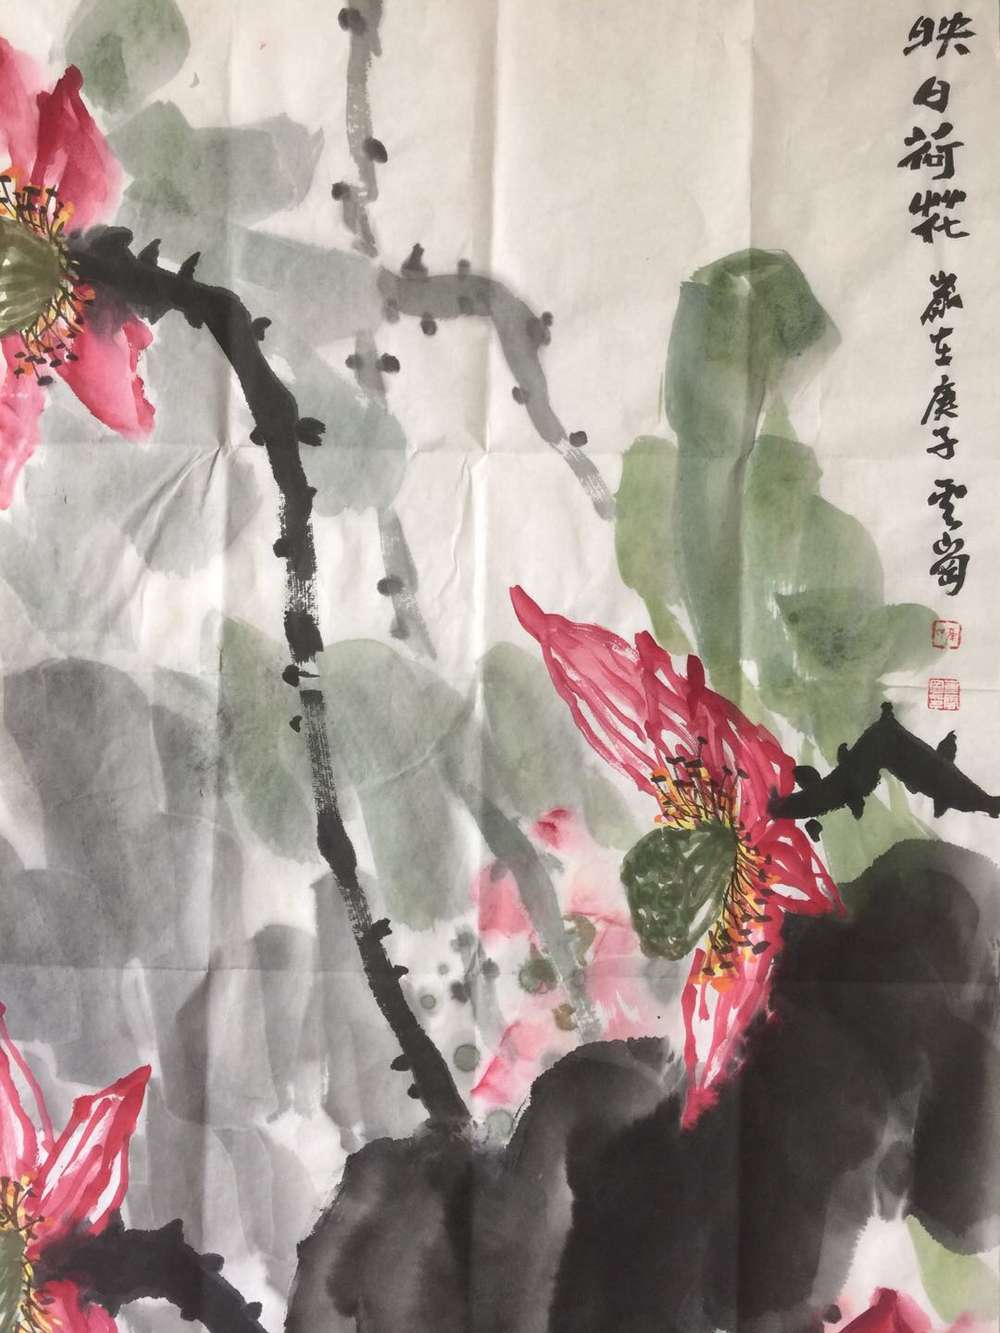 映日荷花 岁在庚子 雲